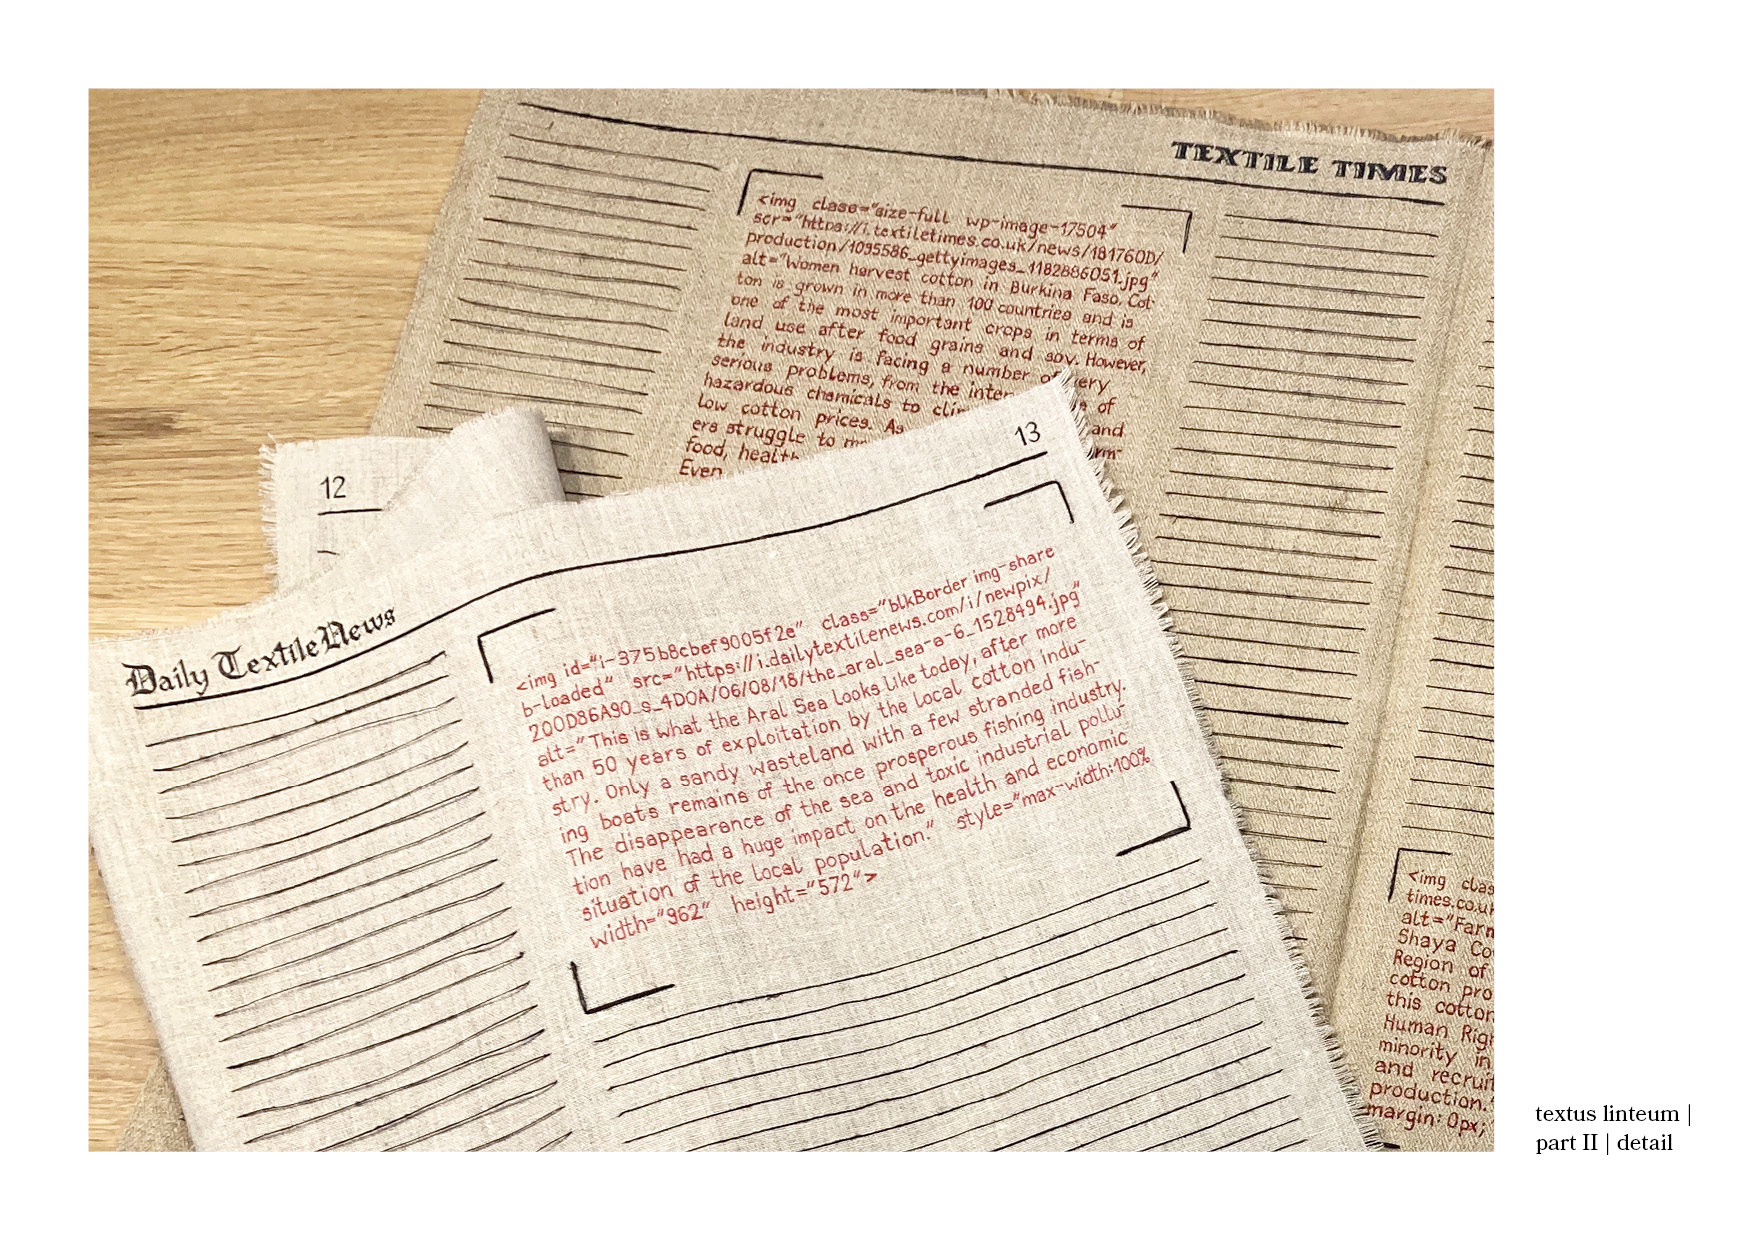 TEXTILE TIMES
<img class="size-full wp-image-17504"
scr="https://i.textiletimes.co.uk/news/181760D/
production/1095586_gettyimages_1182886051.jpg"
alt="Women harvest cotton in Burkina Faso. Cot-
ton is grown in more than 100 countries and is
one of the most important crops in terms of
land use after food grains and soy. However,
the industry is facing a number of
serious problems, from the
hazardous chemicals to of
low cotton prices. As and
ers struggle to
food,
Even
12
13
Daily Textile News
<img id="i-375b8cbef9005f2e" class="blkBorder img-share
b-loaded" src="https://i.dailytextilenews.com/i/newpix/
200D86A90_s_4D0A/06/08/18/the_aral_sea-a-6_1528494.jpg"
alt="This is what the Aral Sea looks like today, after more
than 50 years of exploitation by the local cotton indu-
stry. Only a sandy wasteland with a few stranded fish-
ing boats remains of the once prosperous fishing industry.
The disappearance of the sea and toxic industrial pollu-
tion have had a huge impact on the health and economic
situation of the local population." style="max-width:100%
width="962" height="572">
<img clas
times.co.u
alt="Farm
Shaya Co
Region of
cotton pro
this cotton
Human Rig
minority in
and recruit
production.
margin: 0px;
textus linteum |
part II | detail